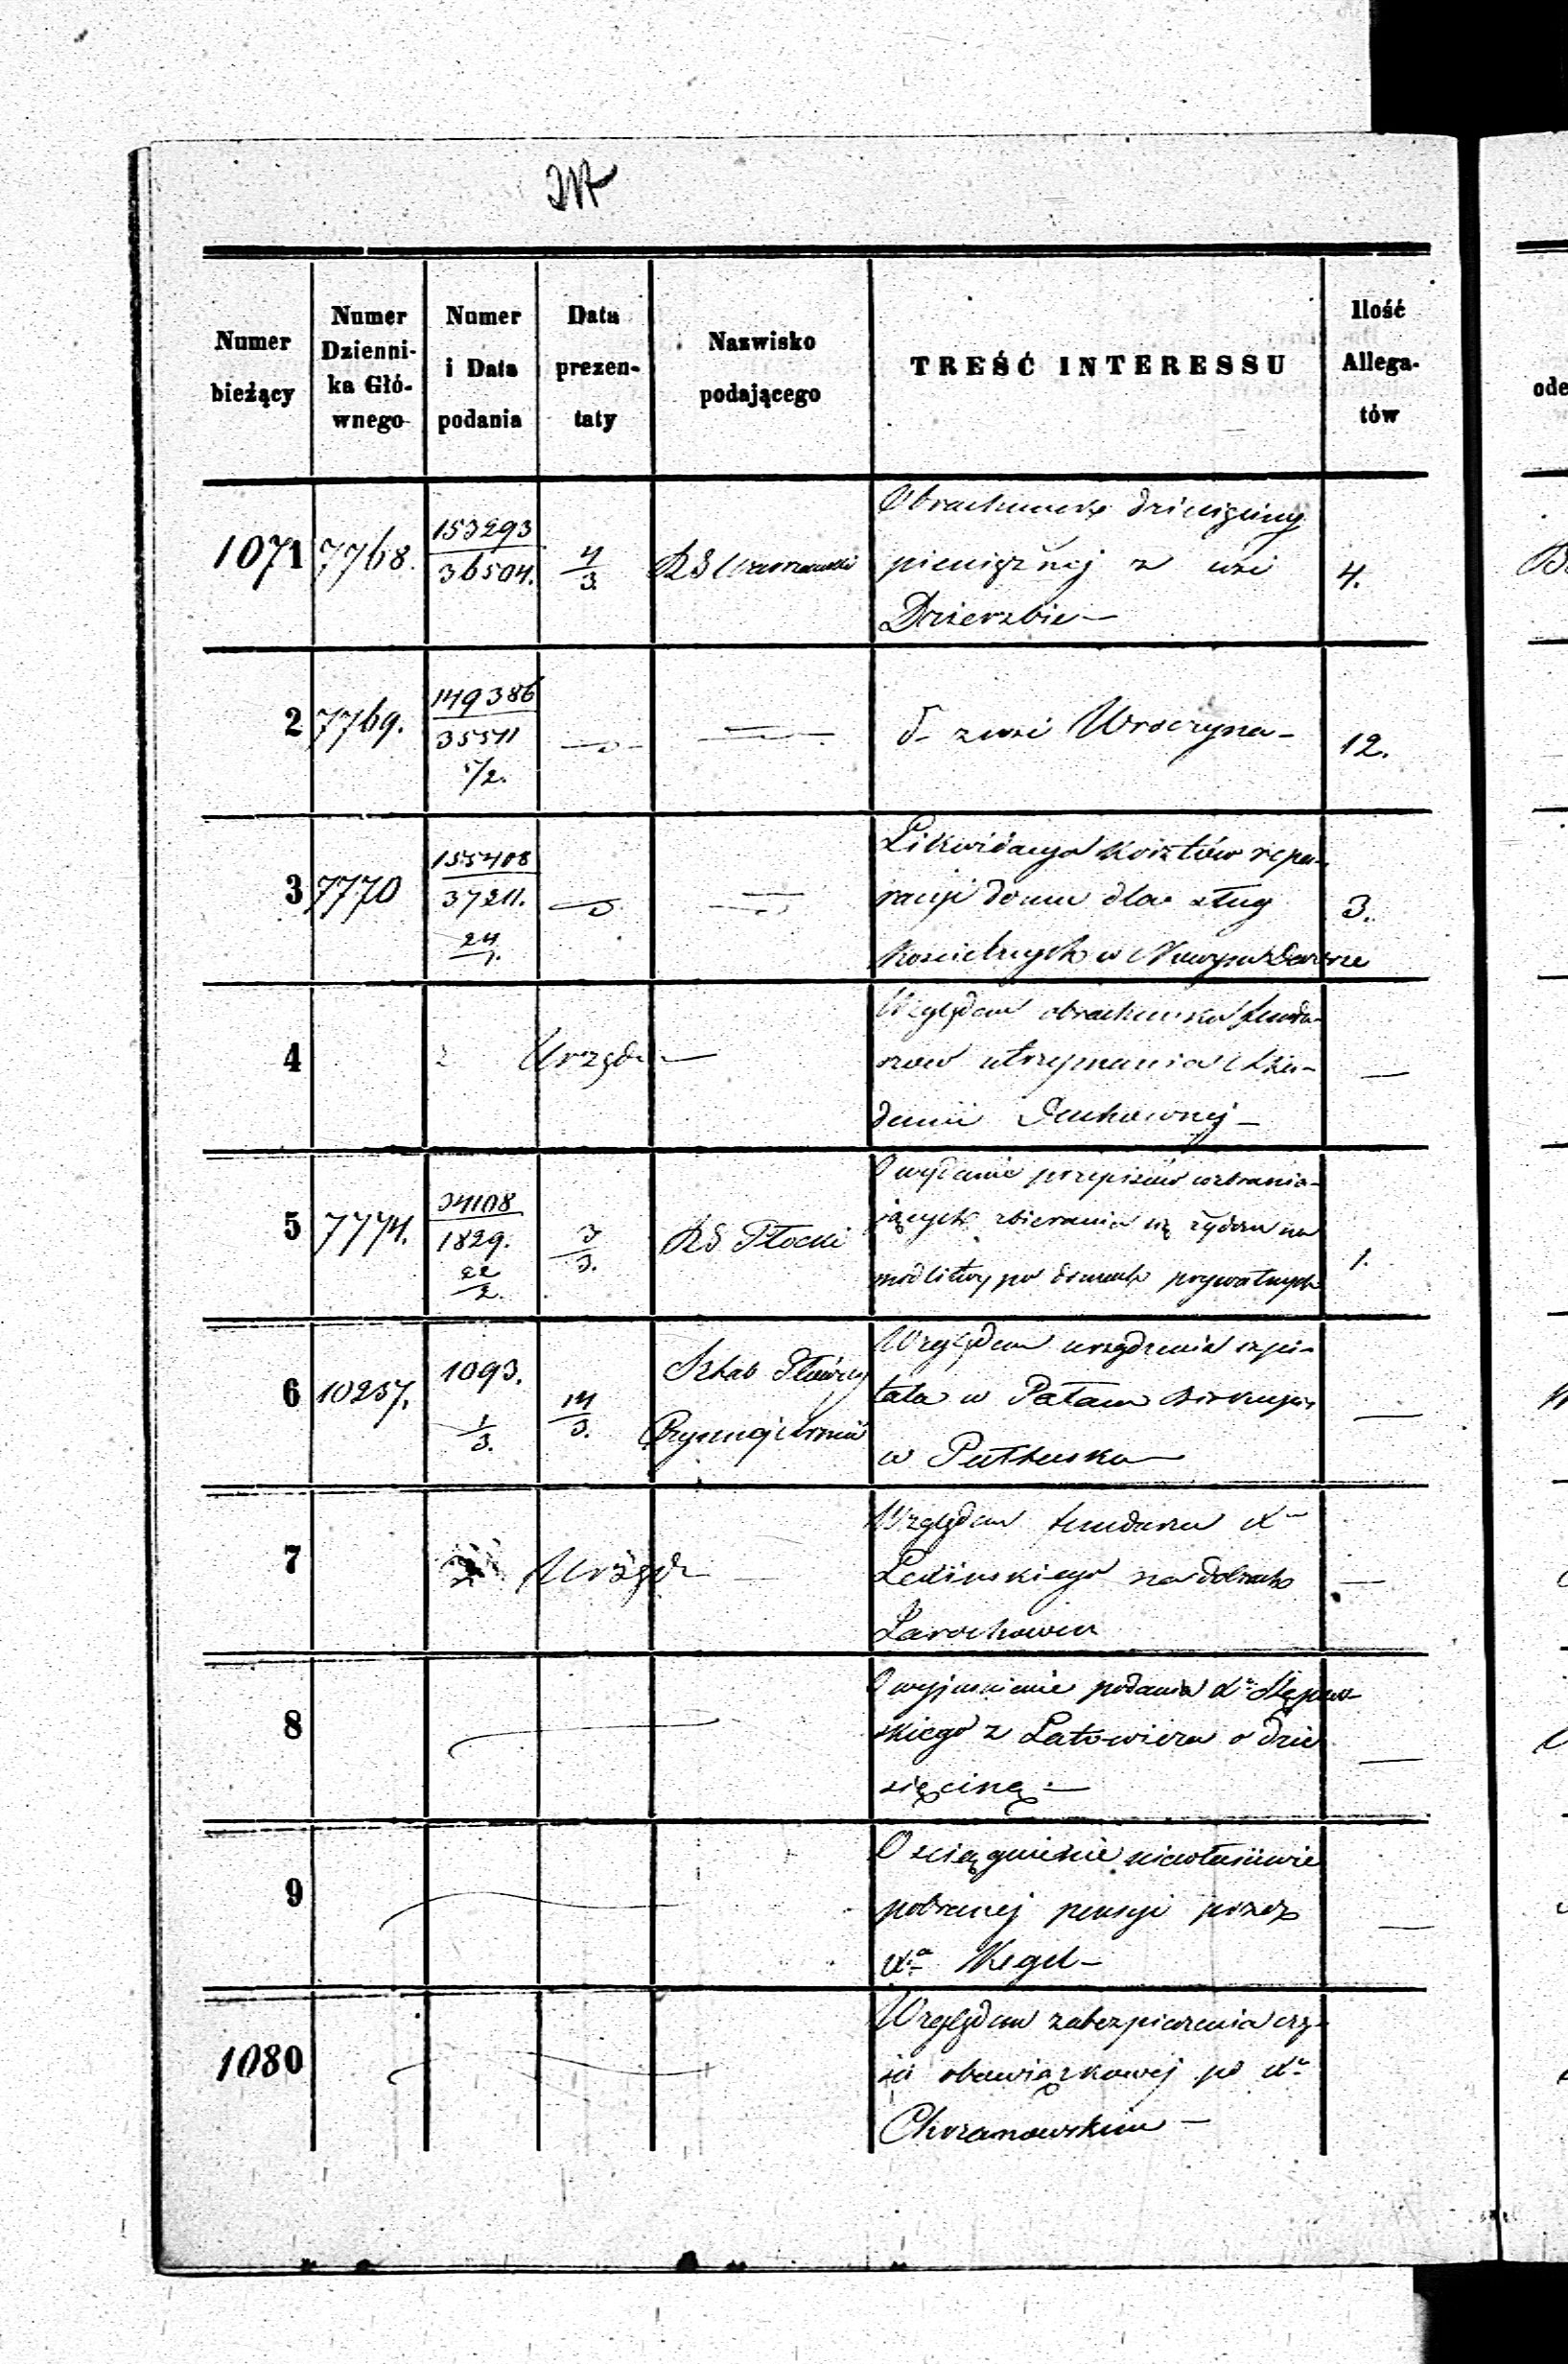 Numer bieżący
Numer Dzienni-ka Głó-wnego
Numer i Data podania
Data prezen-taty
Nazwisko podającego
TREŚĆ INTERESSU
Ilość Allega-tów
1071 7768. 153293 36504. 4/3 RG Warszawski
Obrachunek dziesięciny
pieniężnej z wsi
Dzierzbie —
4.
2 7769. 149386 35541 5/2.
d— z wsi Wroczyna —
12.
3 7770 155408 37211. 24/1.
Likwidacya kosztów repa-
racyi domu dla sług
kościelnych w
3.
4 Urzęd
Względem obrachunku fundu-
szow utrzymania Aka-
demii Duchownej —
5 7774. 34108 1829. 22/2. 3/3. RG Płocki
O wydanie przepisów wzbrania-
jących zbierania się żydom na
modlitwy po domach prywatnych
1.
6 10257. 1093. 1/3. 14/3. Sztab Główny
Czynnej Armii
Względem urządzenia szpi-
tala w Pałacu Biskupim
w Pułtusku —
7 Urzęd
Względem funduszu Xa
na dobrach
Zarochowin
8
O wyjaśnienie podania Xa Stępow-
skiego z Latowicza o dzie
sięcinę —
9
O ściągnienie niewłaściwie
pobranej pensyi przez
Xa Kegel —
1080
Względem zabezpieczenia czę-
ści obowiązkowej po Xu
Chrzanowskim —
ode